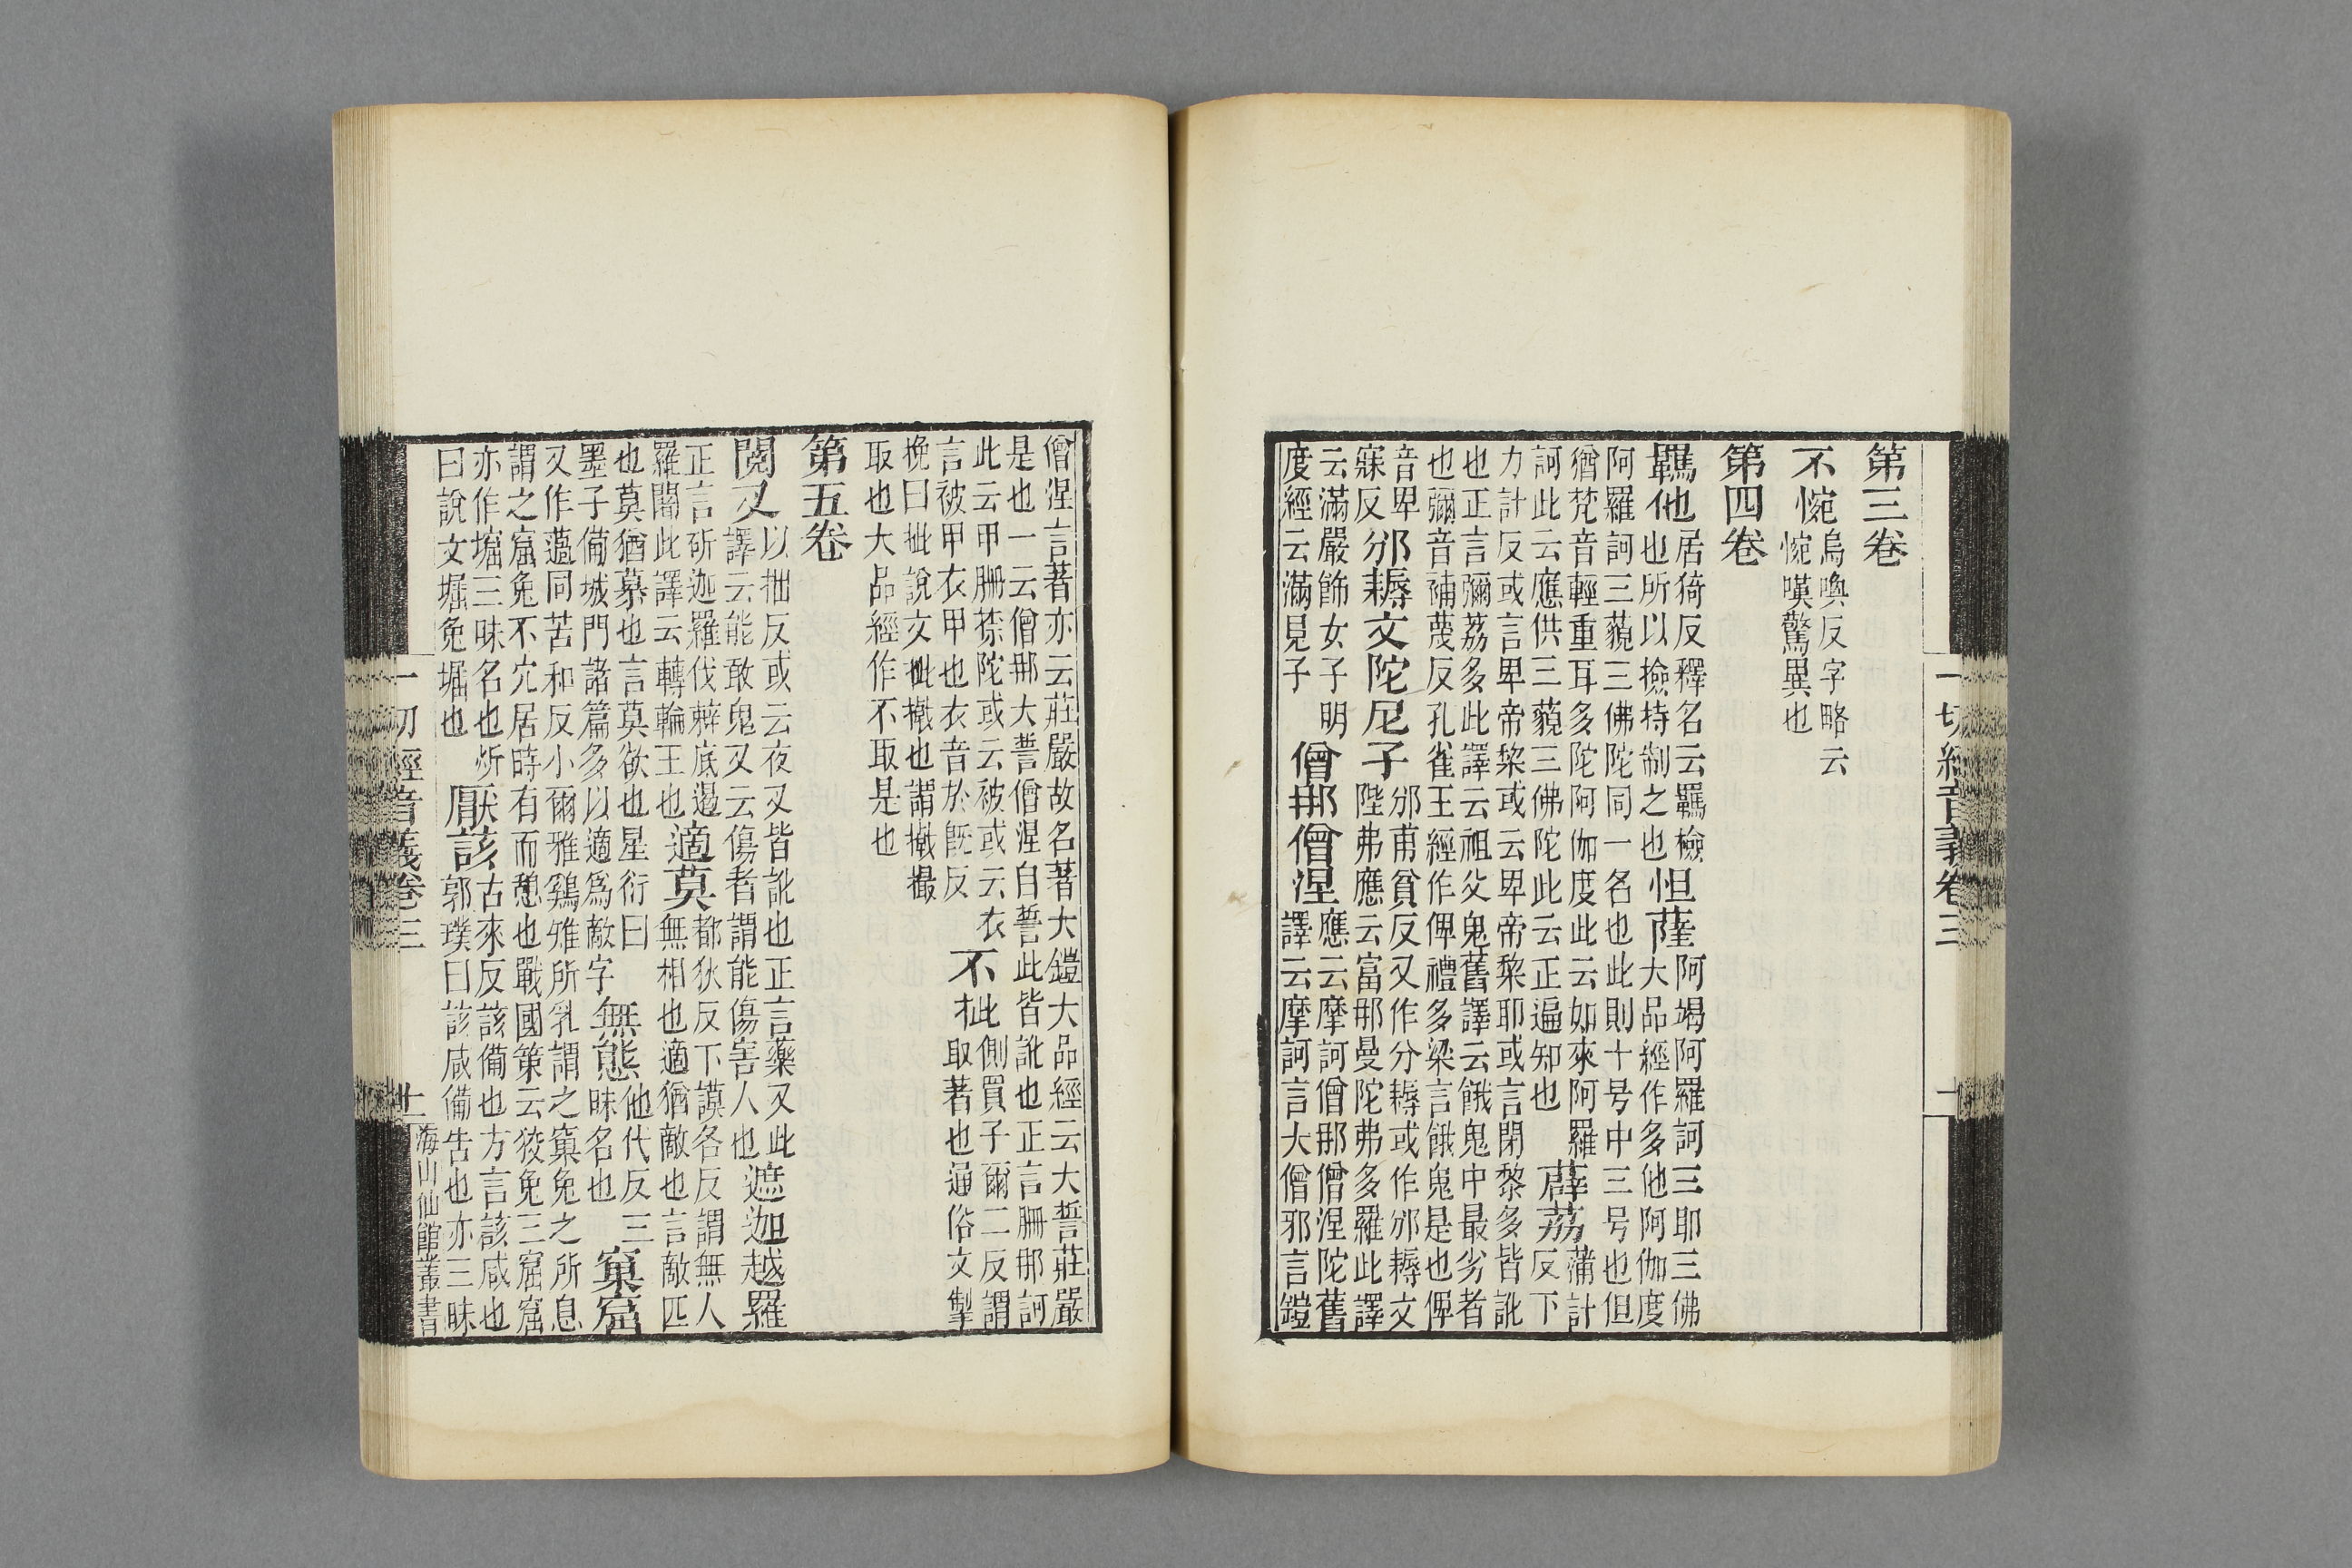 第三卷
不惋
烏喚反字略云
惋嘆驚異也
第四卷
羈他
居猗反釋名云羈檢
也所以撿持制之也
怛薩
阿竭阿羅訶三耶三佛
大品經作多他阿伽度
阿羅訶三藐三佛陀同一名也此則十号中三号也但
猶梵音輕重耳多陀阿伽度此云如來阿羅
訶此云應供三藐三佛陀此云正遍知也
薜荔
蒲計
反下
力計反或言卑帝棃或云卑帝棃耶或言閉黎多皆訛
也正言彌荔多此譯云祖父鬼舊譯云餓鬼中最劣者
也彌音補蔑反孔雀王經作俾禮多梁言餓鬼是也俾
音卑
寐反
邠耨文陀尼子
邠甫貧反又作分耨或作邠耨文
陛弗應云富那曼陀弗多羅此譯
云滿嚴飾女子明
度經云滿見子
僧那僧涅
應云摩訶僧那僧涅陀舊
譯云摩訶言大僧邪言鎧
一切經音義卷三
僧涅言著亦云莊嚴故名著大鎧大品經云大誓莊嚴
是也一云僧那大誓僧涅自誓此皆訛也正言刪那訶
此云甲刪捺陀或云被或云衣
言被甲衣甲也衣音於旣反
不批
側買子爾二反謂
取著也通俗文掣
挽曰批說文批㩢也謂㩢撮
取也大品經作不取是也
第五卷
閱叉
以拙反或云夜叉皆訛也正言藥叉此
譯云能敢鬼叉云傷者謂能傷害人也
遮迦越羅
正言斫迦羅伐辣底遏
羅闍此譯云轉輪王也
適莫
都狄反下謨各反謂無人
無相也適猶敵也言敵匹
也莫猶慕也言莫欲也星衍曰
墨子備城門諸篇多以適爲敵字
無態
他代反三
昧名也
窠窟
又作薖同苦和反小爾雅鷄雉所乳謂之窠兔之所息
謂之窟兔不穴居時有而憩也戰國策云狡免三窟窟
亦作堀三昧名也炘
曰說文堀兔堀也
厭該
古來反該備也方言該咸也
郭璞曰該咸備吿也亦三昧
一切經音義卷三
十一
海山仙館叢書